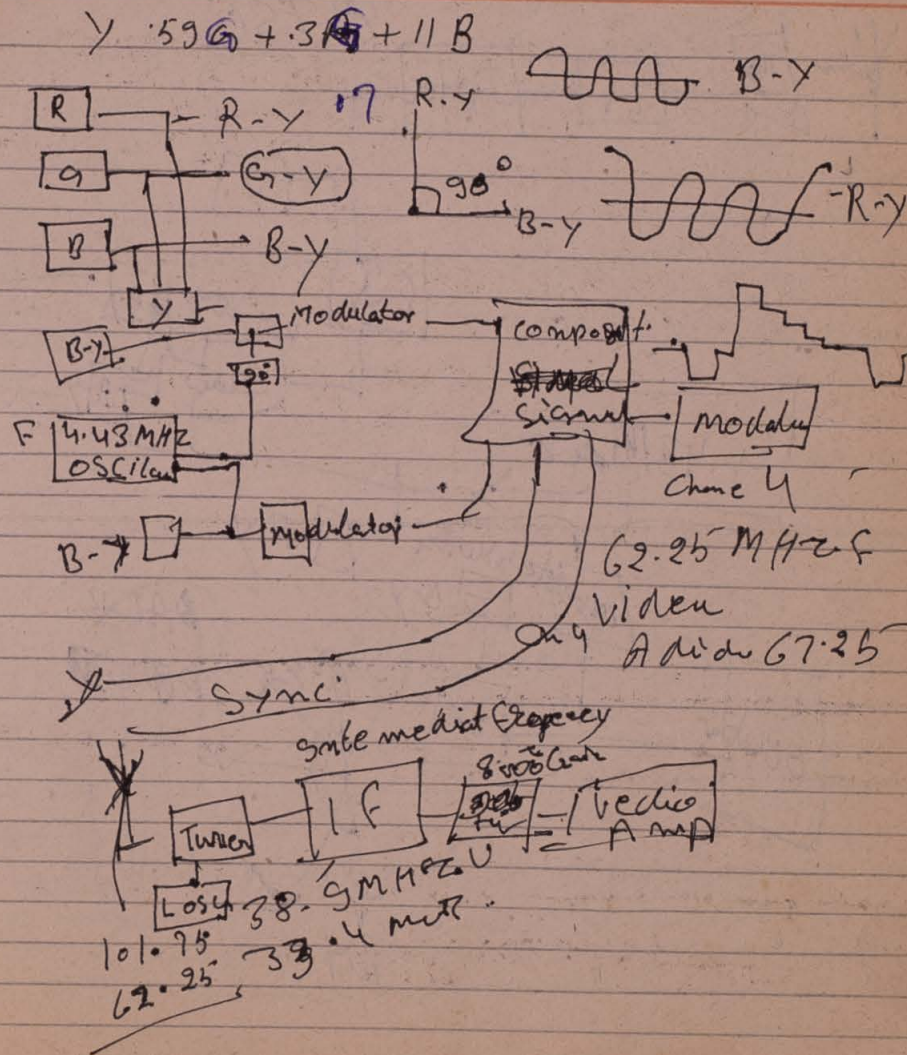 Y .59G + .3 + 11 B
B-Y
R
R-Y
.7
R.Y
G
G-Y
90°
B-Y
R-Y
B
B-Y
Y
Modulator
composit
signal
B-Y
90°
F 4.43 MHZ
OSCilar
Modalu
Chane 4
B-Y
Modulator
62.25 MHz F
Video
67.25
Y
Sync
Intemediat freqency
Tuner
IF
Vedio
AmA
Losc
38.9MHz V
101.75
33.4 MHZ.
62.25